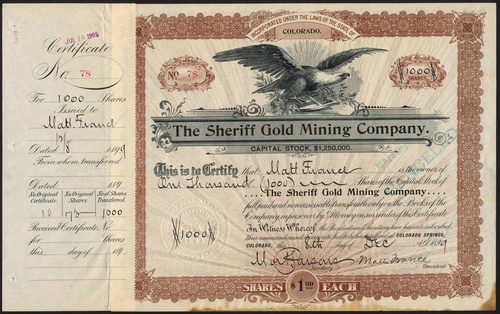 JUL 18 1902
Certificate
No. 78
For 1000 Shares
Issued to
Matt France
12/8 1899
From whom transferred
Dated 189
No. Original Certificate
No. Original Shares
No. of Shares Transferred
10 173 1000
Received Certificate No.
For Shares
this day of 189
INCORPORATED UNDER THE LAWS OF THE STATE OF
COLORADO.
NO 78
1000
SHARES
The Sheriff Gold Mining Company.
CAPITAL STOCK, $1,250,000.
This is to Certify that Matt France is the owner of
One Thousand (1000) Shares of the Capital Stock of
The Sheriff Gold Mining Company
full paid and non assessable Transferable only on the Books of the
Company in person or by Attorney on surrender of this Certificate
In Witness Whereof
COLORADO SPRINGS,
COLORADO, this 8th day of Dec 1899
1000
Secretary
Matt France
President
SHARES $1.00 EACH